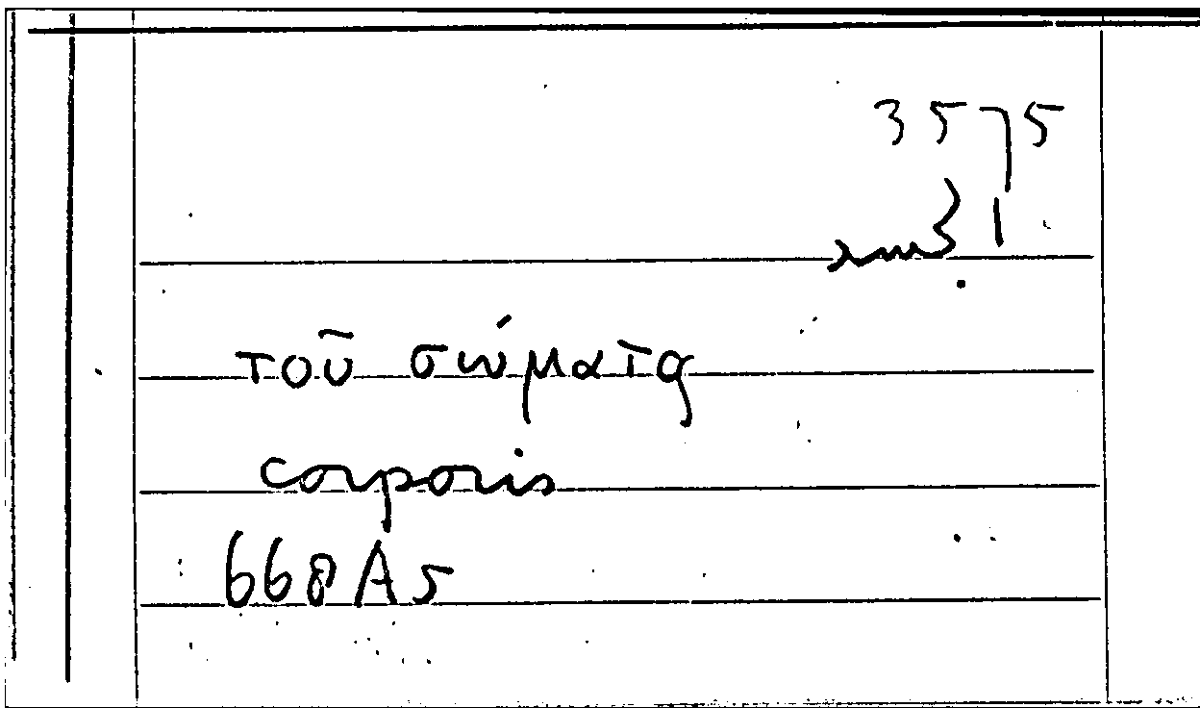 3575
τοῦ σώματος
corporis
668A5